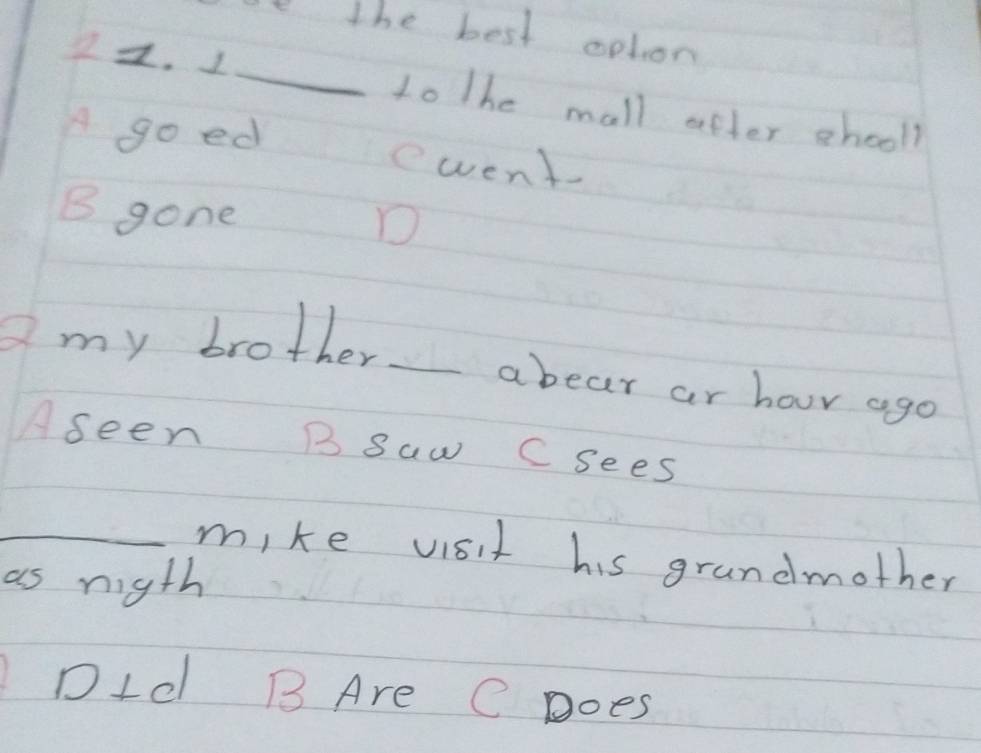 the best option
2 1. I ____ to the mall after shcool
A goed C went
B gone D
2 my brother ____ a bear ar hour ago
A seen B saw C sees
____ mike visit his grandmother
as nigth
Did B Are C Does